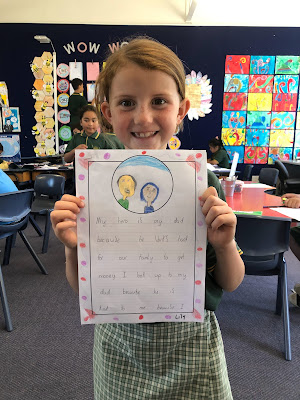 WOW WOW
My hero is my dad
because he works hard
for our family to get
money I look up to my
dad because he is
kind to me because I
Lily